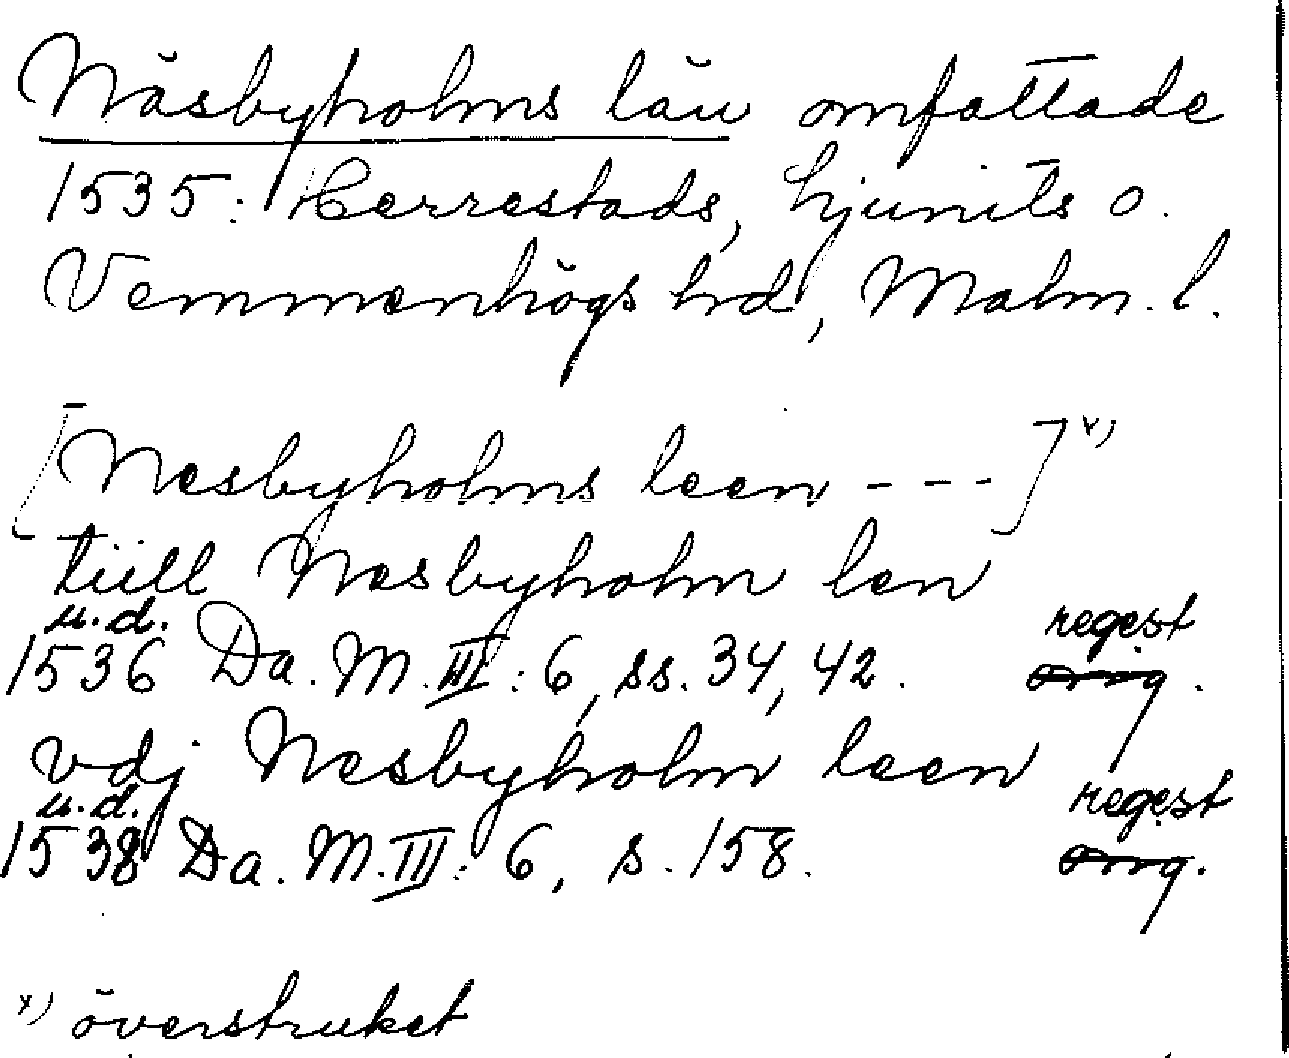 Näsbyholms län omfattade
1535: Herrestads, Ljunits o.
Vemmenhögs hrd, Malm. l.
[Nesbyholms leen - - -] x)
tiill Nesbyholm len
u.d. regest
1536 Da. M. III: 6, ss. 34, 42. omg.
vdj Nesbyholm leen
u.d. regest
1538 Da. M. III: 6, s. 158. omg.
x) överstruket